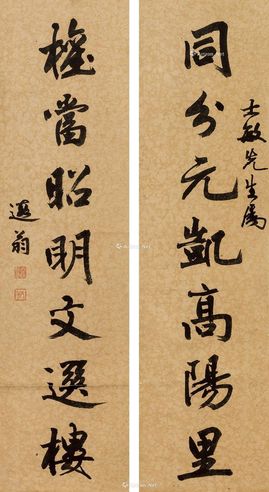 同分元凱高陽里
士敏先生屬
權當昭明文選樓
遐翁